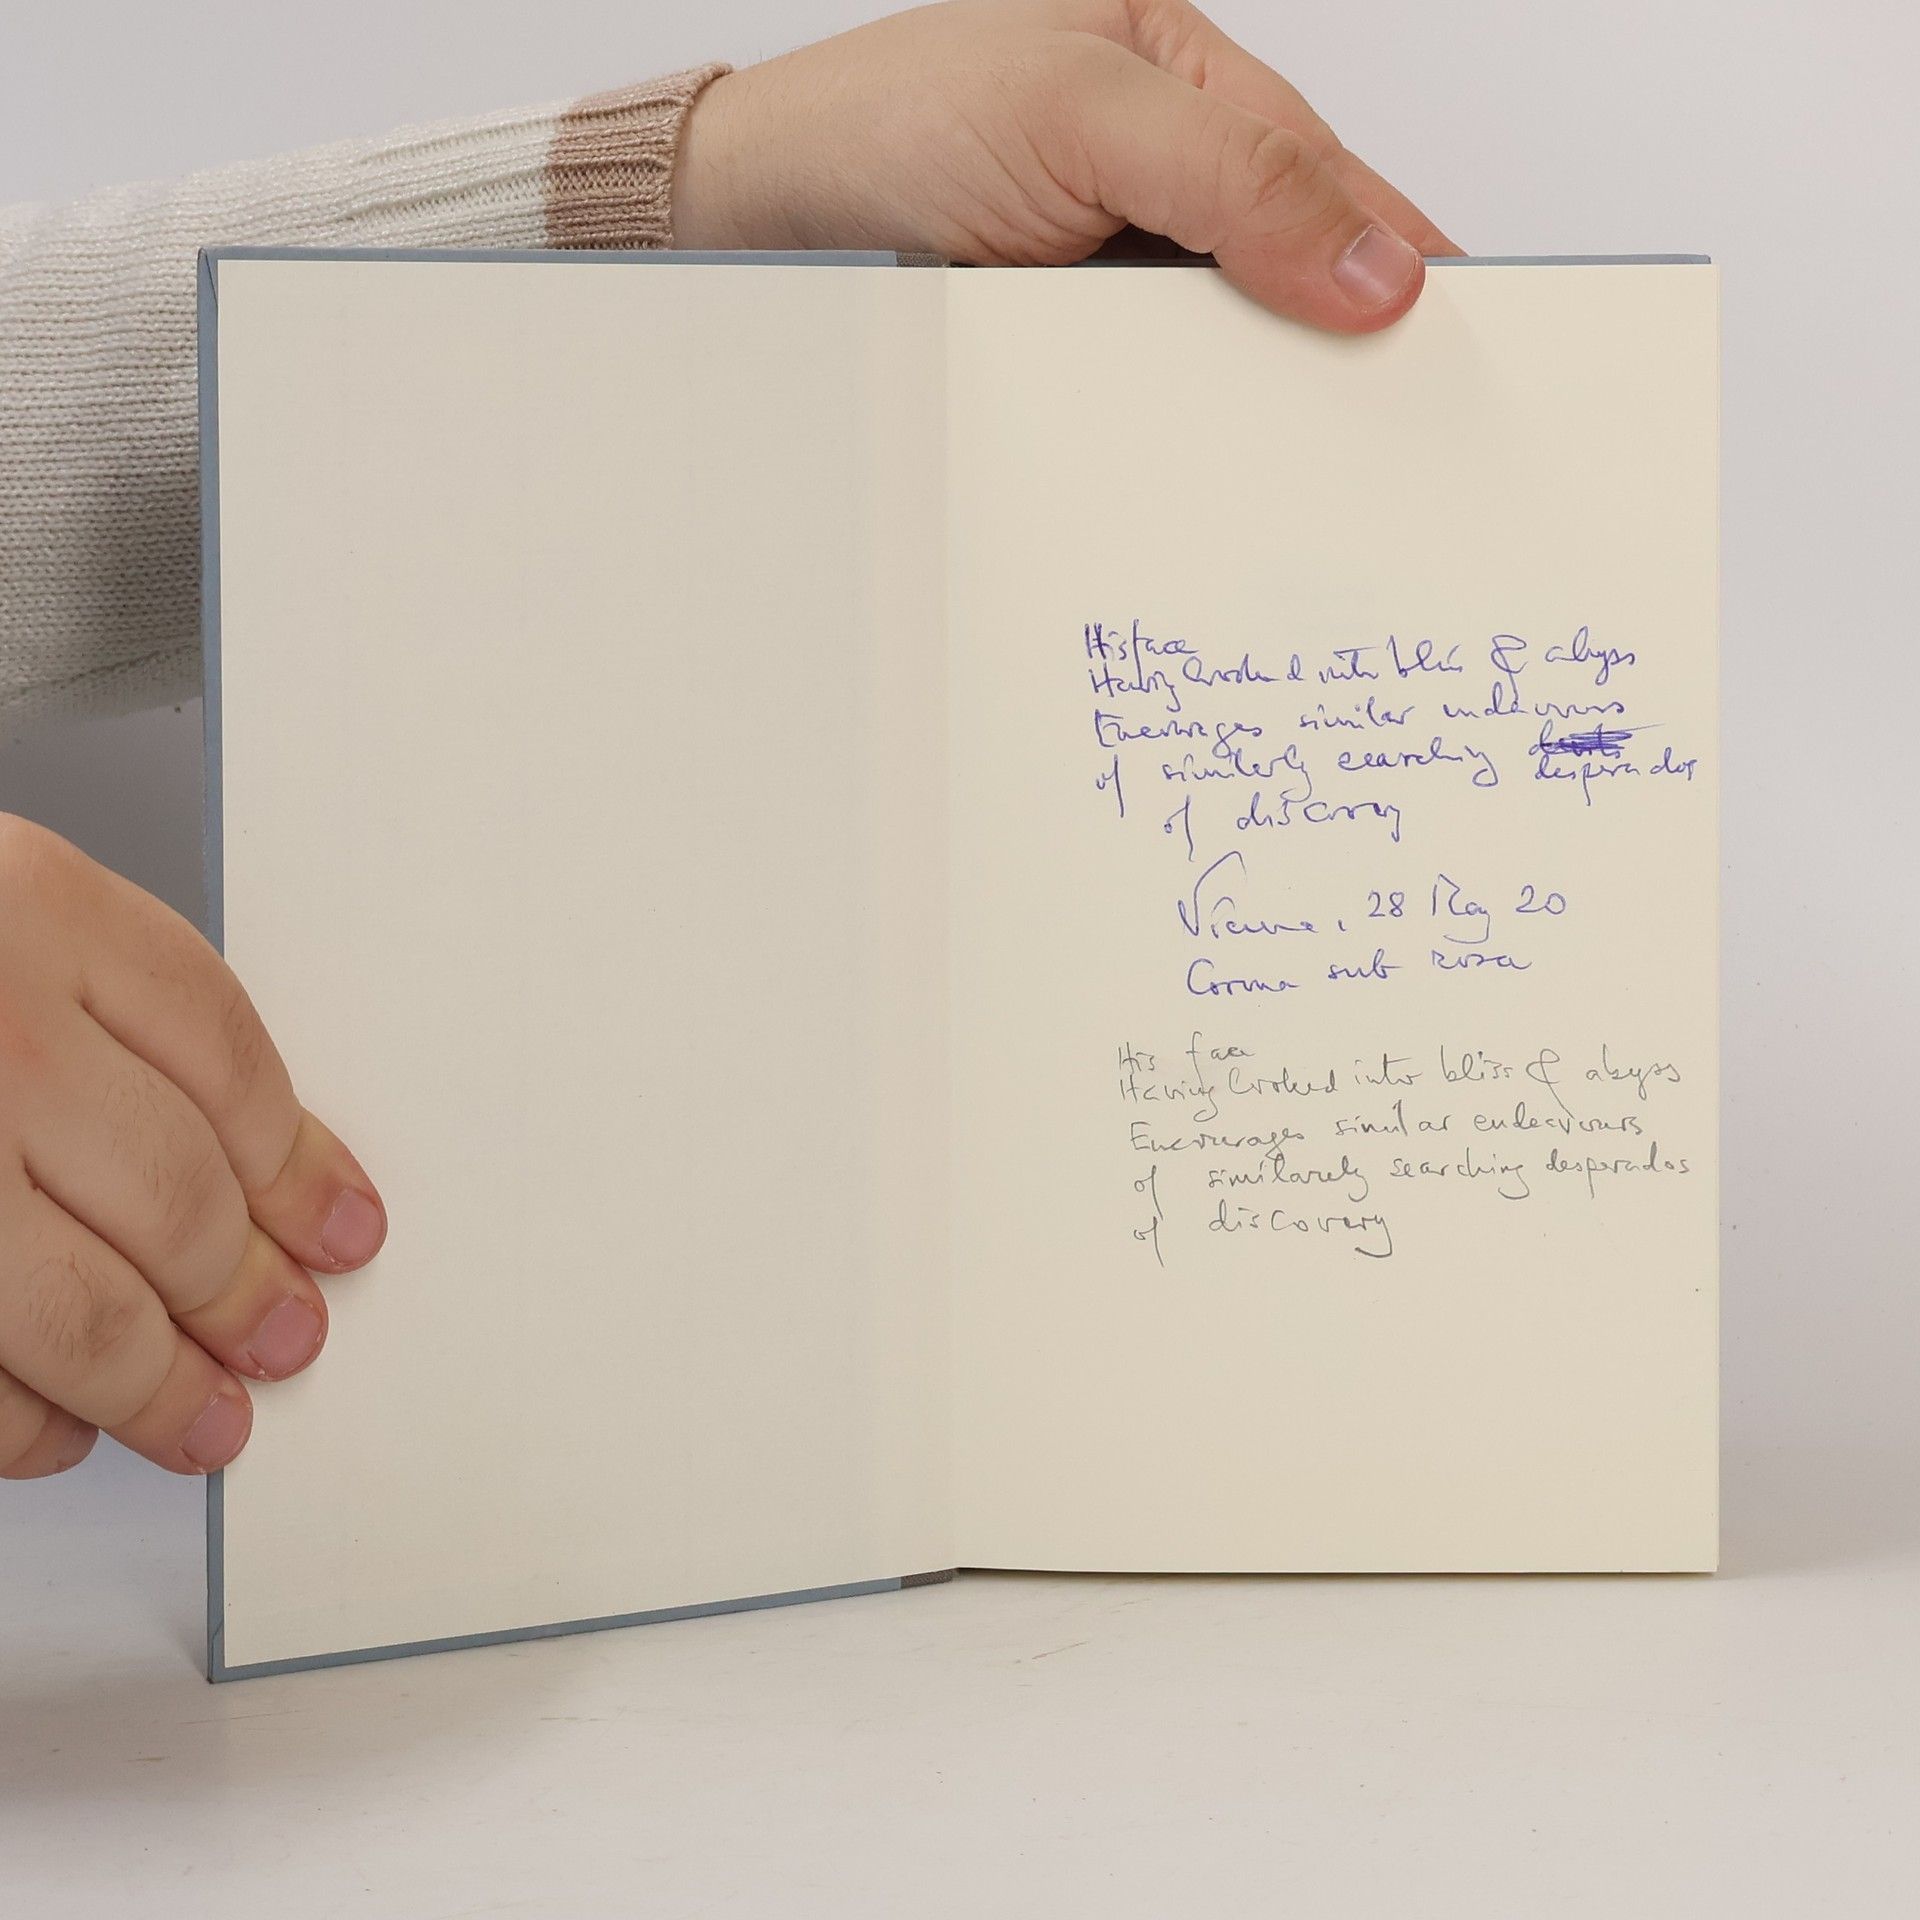 His face
Having looked into bliss & abyss
Encourages similar endeavours
of similarly searching desperados
of discovery
Vienna, 28 May 20
Corona sub rosa
His face
Having looked into bliss & abyss
Encourages similar endeavours
of similarely searching desperados
of discovery